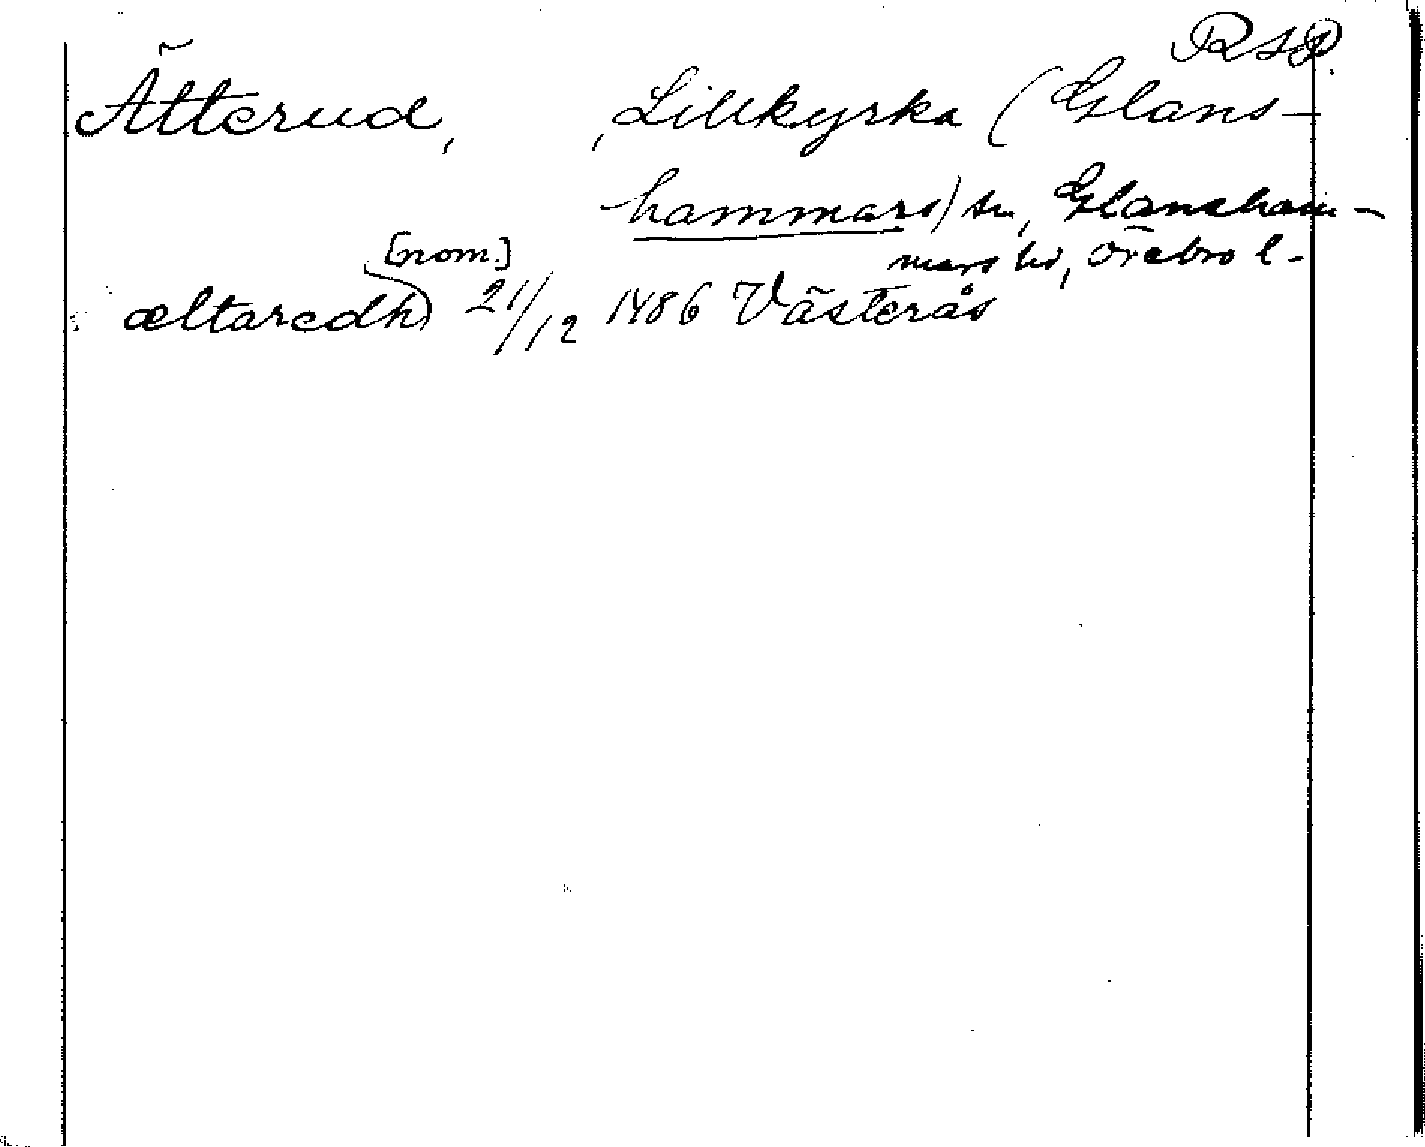 RSP.
Ätterud, , Lillkyrka (Glans-
hammars) sn, Glansham-
mars hd, Örebro l.
[nom.]
æltaredh 21/12 1486 Västerås